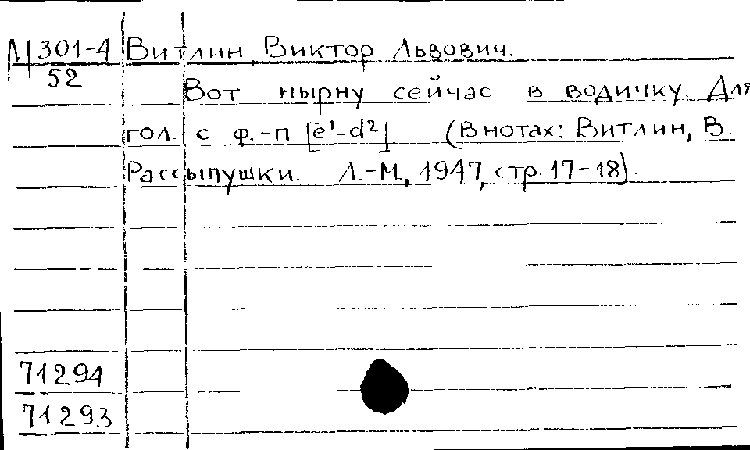 М 301-4 Витлин, Виктор Львович.
52
Вот нырну сейчас в водичку. Для
гол. с ф.-п [e¹-d²] (В нотах: Витлин, В.
Рассыпушки. Л.-М., 1947, стр. 17-18).
71294
71293